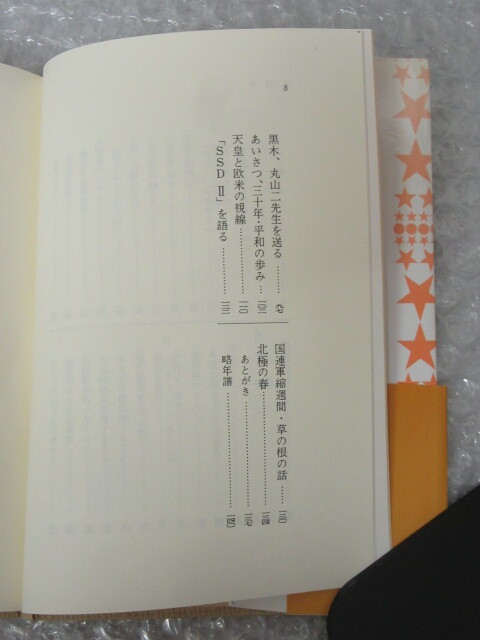 8
黒木、丸山二先生を送る………
あいさつ、三十年・平和の歩み…一〇二
天皇と欧米の視線………………一一〇
「SSDⅡ」を語る……………
国連軍縮週間・草の根の話……一三〇
北極の春………………………一三四
あとがき………………………一三七
略年譜…………………………